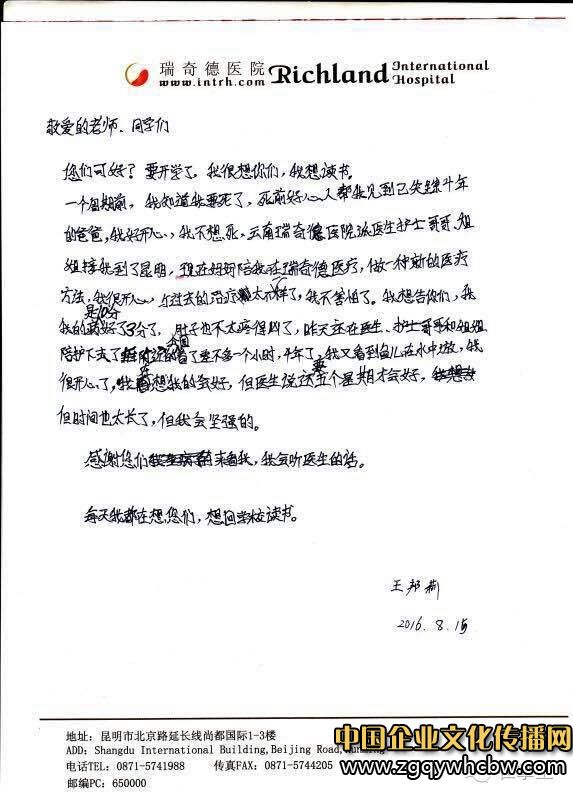 瑞奇德医院 Richland International Hospital
www.intrh.com
敬爱的老师、同学们
您们可好?要开学了,我很想你们,我想读书。
一个星期前,我知道我要死了,死前好心人帮我见到已失踪十年
的爸爸,我好开心,我不想死,云南瑞奇德医院派医生护士哥哥、姐
姐接我到了昆明,现在妈妈陪我在瑞奇德医疗,做一种新的医疗
方法,我很开心,与过去的治疗太不一样了,我不害怕了。我想告你们,我
是10分
我的病好了3分了,肚子也不太疼得了,昨天主任医生、护士哥哥和姐姐
陪护下去了公园差不多一个小时,半年了,我又看到鱼儿在水中游,我
很开心了,我想我的会好,但医生说要五个星期才会好,
但时间也太长了,但我会坚强的。
感谢您们来看我,我会听医生的话。
每天我都在想您们,想回学校读书。
王邦
2016.8.15
地址:昆明市北京路延长线尚都国际1-3楼
ADD: Shangdu International Building,Beijing Road,
电话TEL: 0871-5741988 传真FAX: 0871-5744205
邮编PC: 650000
中国企业文化传播网
www.zgqywhcbw.com